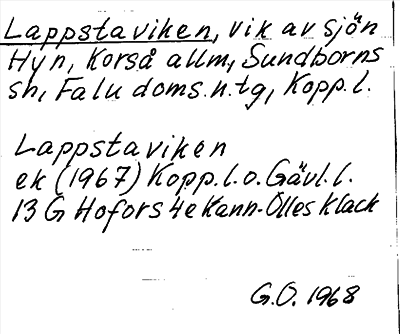 Lappstaviken, vik av sjön
Hyn, Korså allm, Sundborns
sn, Falu doms.n.tg, Kopp.l.
Lappstaviken
ek (1967) Kopp.l.o.Gävl.l.
13 G Hofors 4e Kann-Olles Klack
G.O. 1968